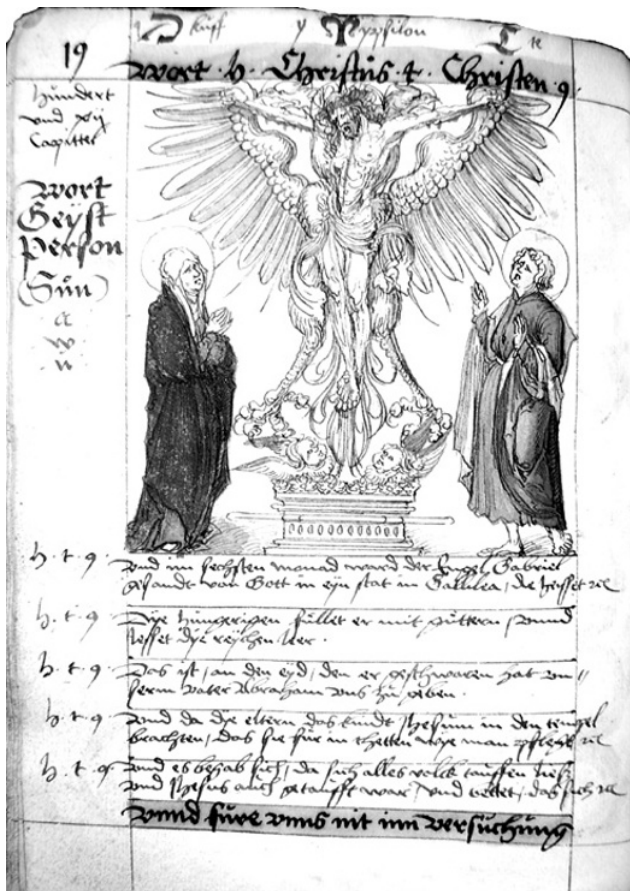 kupff y Ypsilon
19
Wort . h . Christus . t . Christen . 9
hundert
und xij
Capittel
Wort
Geyst
Person
(Sun)
a
w
n
h . t . 9 . Und im sechsten monad ward der Engel Gabriel
gesandt von Gott in eyn stat in Gallilea, die heysset
h . t . 9 Dye hungerigen füllet er mit güttern vnnd
lesset dye reychen leer .
h . t . 9 Das ist, an den eyd, den er geschworen hat vn-
serm vater Abraham vns zu geben .
h . t . 9 Vnnd da dye eltern das kindt Jhesum in den tempel
brachten, das sie für in thetten wye man pfleyt
h . t . 9 Vnd es begab sich, da sich alles volck tauffen liesz
vnd Jhesus auch getaufft war, vnd bettet, das sich
Vnnd füre vnns nit inn versuchung